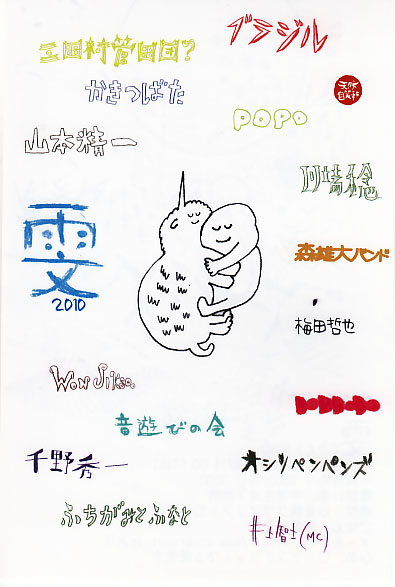 三田村管団団?
ブラジル
かきつばた
POPO
山本精一
雯
2010
森雄大バンド
梅田哲也
音遊びの会
千野秀一
オシリペンペンズ
ふちがみとふなと
井上智士(MC)